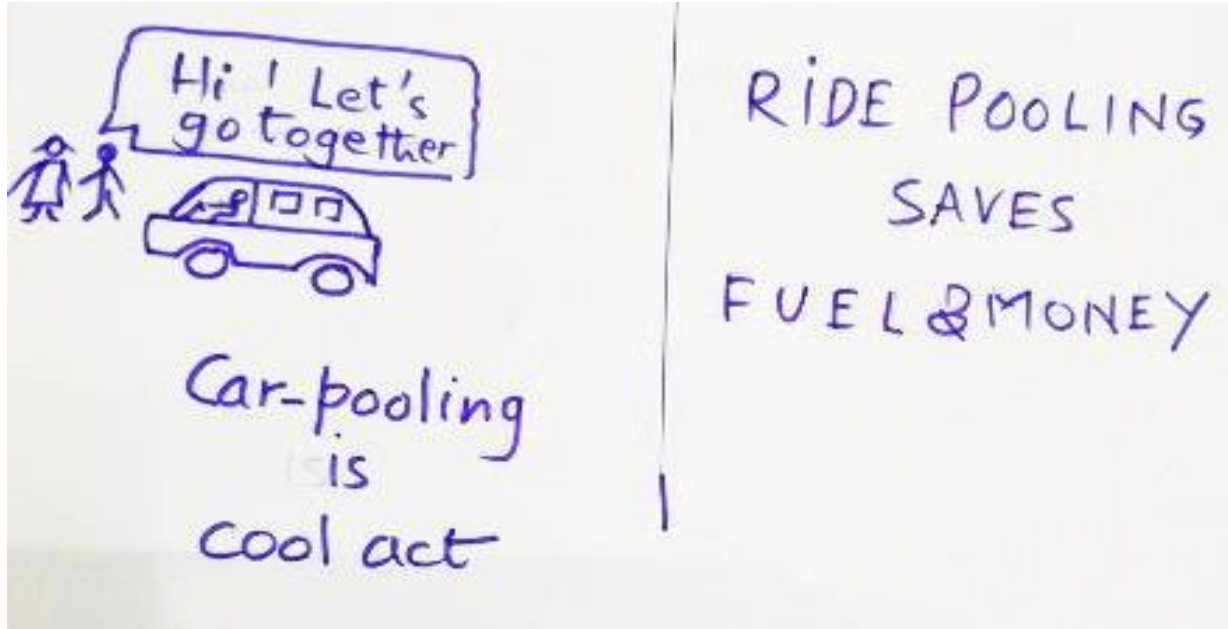 Hi! Let's
go together
Car-pooling
is
cool act
RIDE POOLING
SAVES
FUEL & MONEY